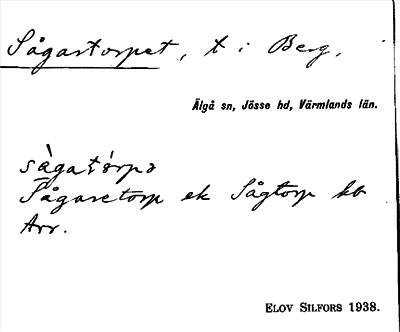 Sågartorpet, t i Berg,
Älgå sn, Jösse hd, Värmlands län.
sàgatórpə
Sågaretorp ek Sågtorp kb
Arr.
ELOV SILFORS 1938.